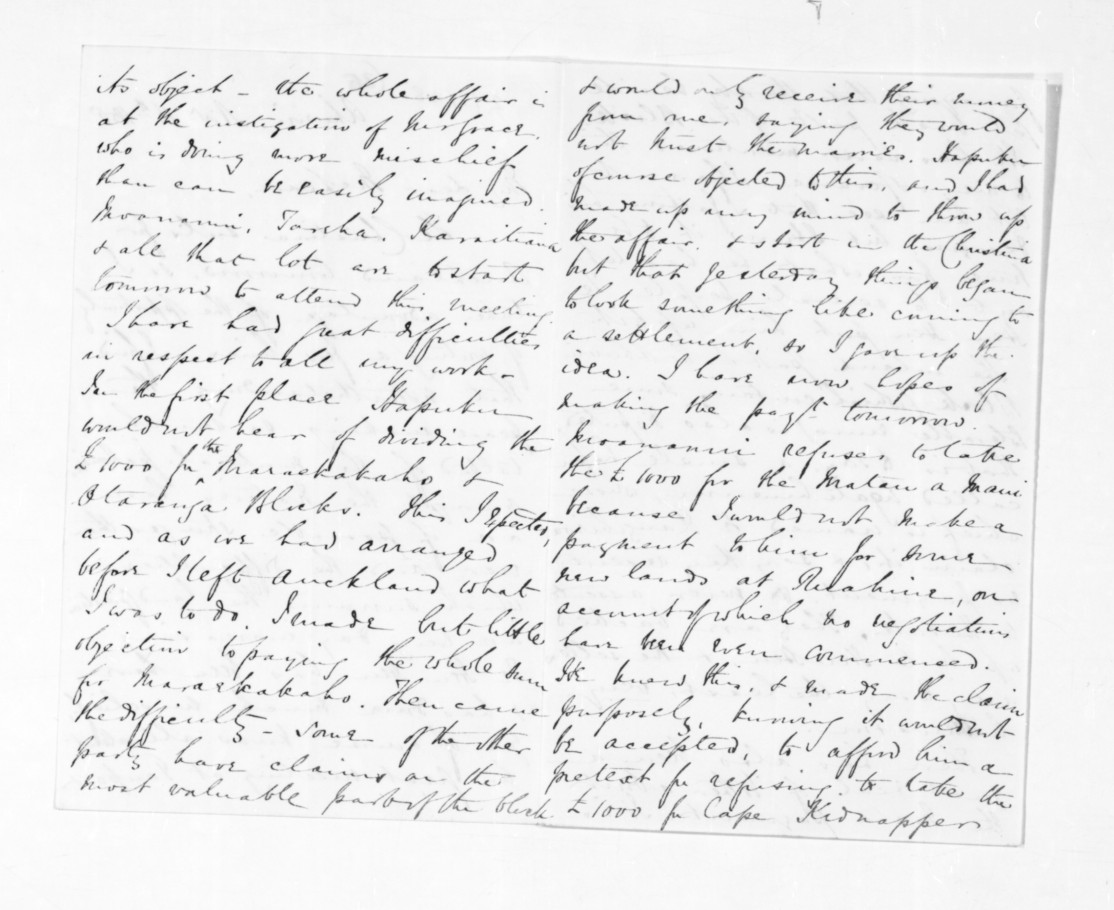 its object - the whole affair is
at the instigation of Mr Grace,
who is doing more mischief
than can be easily imagined.
Moananui, Tareha, Karaitiana
& all that lot are to start
tomorrow to attend this meeting.
I have had great difficulties
in respect to all my work -
In the first place Hapuku
would not hear of dividing the
£1000 for the Maraekakaho &
Otaranga Blocks. This I expected,
and as we had arranged
before I left Auckland what
I was to do, I made but little
objection to paying the whole sum
for Maraekakaho. Then came
the difficulty - Some of the other
party have claims on the
most valuable part of the block
& would only receive their money
from me, saying they would
not trust the maories. Hapuku
of course objected to this, and I had
made up my mind to throw up
the affair, & start in the Christina
but that yesterday things began
to look something like coming to
a settlement, so I gave up the
idea. I have now hopes of
making the payt. tomorrow.
Moananui refuses to take
the £1000 for the Matau a Maui
because I would not make a
payment to him for some
new lands at Ruahine, on
account of which no negotiations
have been even commenced.
He knew this, & made the claim
purposely, knowing it would not
be accepted, to afford him a
pretext for refusing to take the
£1000 for Cape Kidnappers